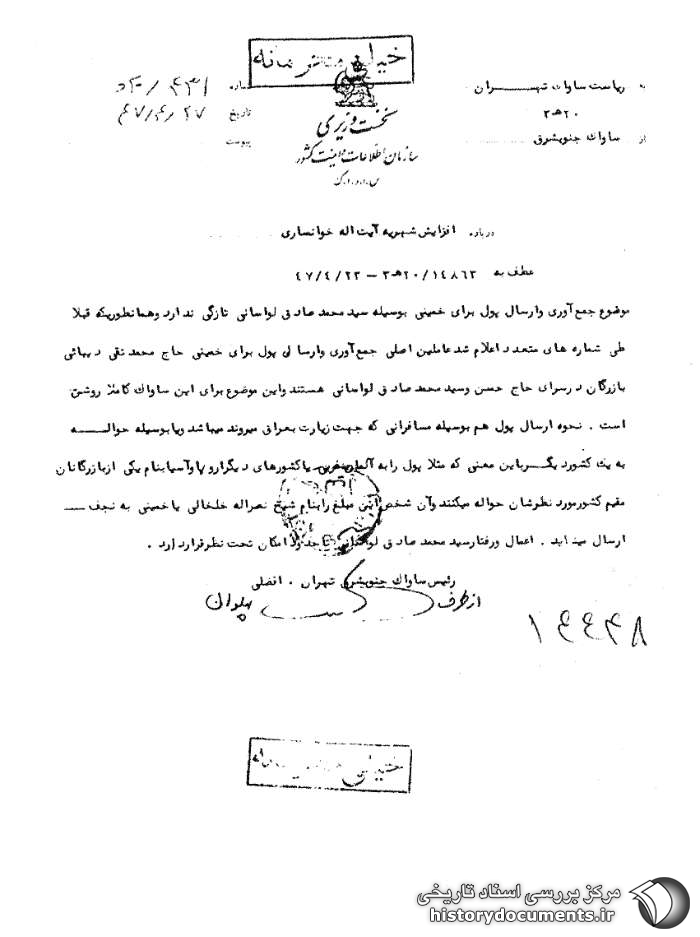 خیلی محرمانه
به ریاست ساواک تهـــران
۲۰ هـ ۳
از ساواک جنوبشرق
نخست وزیری
سازمان اطلاعات و امنیت کشور
س.ا.و.ا.ک
شماره
تاریخ ۴۷/۴/۲۷
پیوست
درباره افزایش شهریه آیت اله خوانساری
عطف به ۲۰/۱۴۸۶۳هـ۳ – ۴۷/۴/۲۳
موضوع جمع آوری وارسال پول برای خمینی بوسیله سید محمد صادق لواسانی تازگی ندارد وهمانطوریکه قبلا
طی شماره های متعدد اعلام شد عاملین اصلی جمع آوری وارسال پول برای خمینی حاج محمد تقی دیبائی
بازرگان درسرای حاج حسن وسید محمد صادق لواسانی هستند واین موضوع برای این ساواک کاملا روشن
است . نحوه ارسال پول هم بوسیله مسافرانی که جهت زیارت بعراق میروند میباشد ویا بوسیله حوالـــه
به یک کشور دیگـر باین معنی که مثلا پول را به آلمان غربی یا کشورهای دیگر اروپا وآسیا بنام یکی از بازرگانان
مقیم کشور مورد نظرشان حواله میکنند وآن شخص این مبلغ را بنام شیخ نصراله خلخالی یا خمینی به نجف
ارسال مینماید . اعمال ورفتار سید محمد صادق لواسانی تا حدود امکان تحت نظر قرار دارد .
رئیس ساواک جنوبشرق تهران . افضلی
از طرف پهلوان
۱۴۴۳۸
خیلی محرمانه
مرکز بررسی اسناد تاریخی
historydocuments.ir